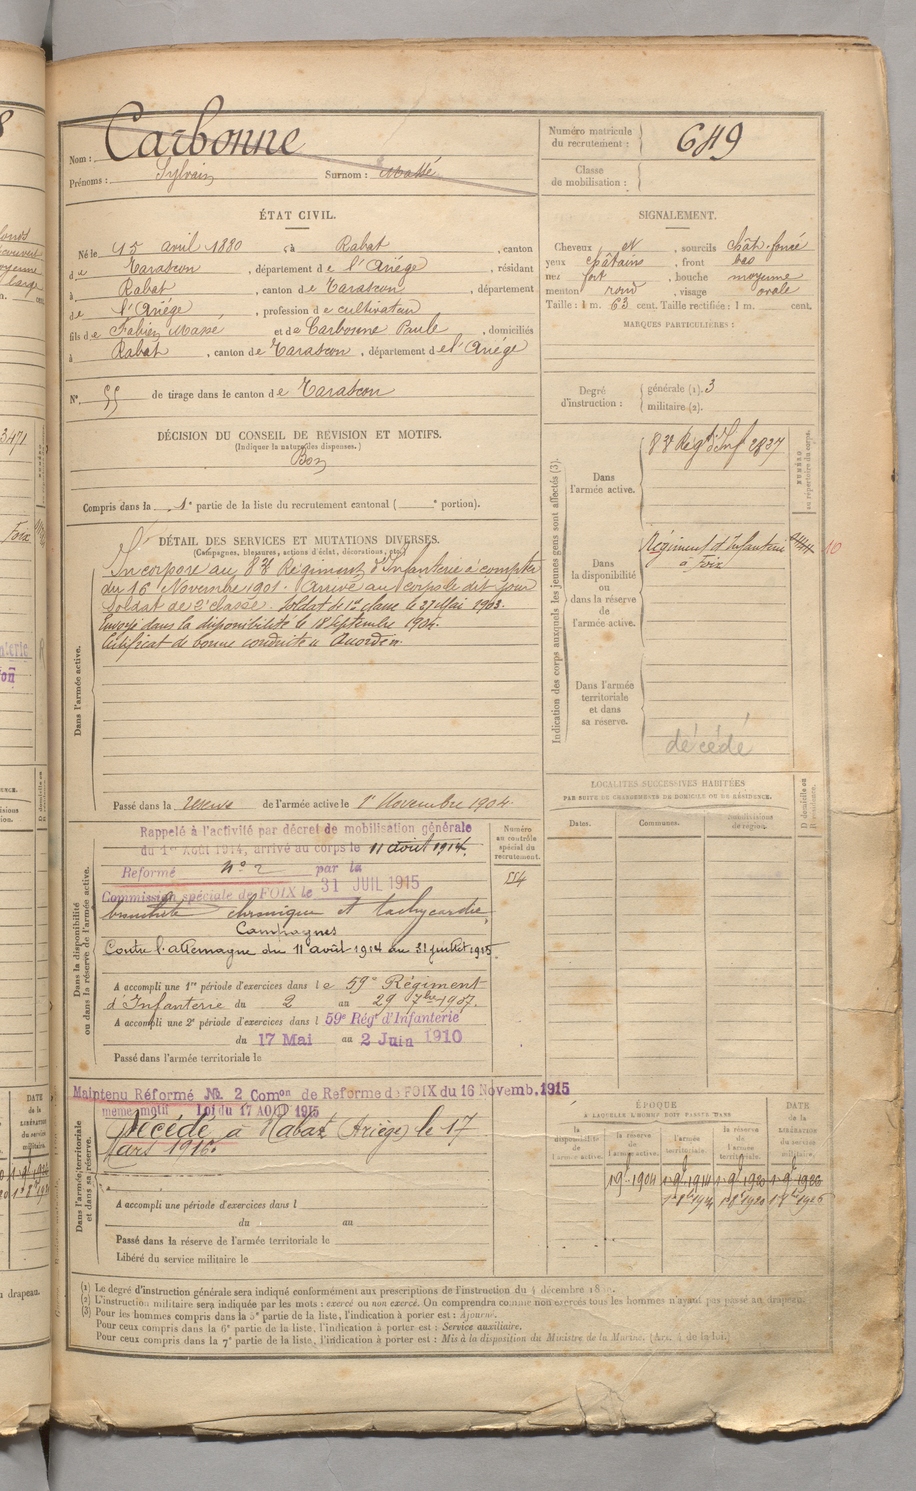 Nom : Carbonne
Prénoms : Sylvain Surnom : Massé
Numéro matricule du recrutement : 649
Classe de mobilisation :
ÉTAT CIVIL.
Né le 15 avril 1880, à Rabat, canton
de Tarascon, département de l'Ariége, résidant
à Rabat, canton de Tarascon, département
de l'Ariége, profession de cultivateur
fils de Fabien Massé et de Carbonne Paule, domiciliés
à Rabat, canton de Tarascon, département de l'Ariége
N° 55 de tirage dans le canton de Tarascon
SIGNALEMENT.
Cheveux et, sourcils chât. foncé
yeux châtains, front bas
nez fort, bouche moyenne
menton rond, visage ovale
Taille : 1 m. 63 cent. Taille rectifiée : 1 m. cent.
MARQUES PARTICULIÈRES :
Degré d'instruction : générale (1). 3
militaire (2).
DÉCISION DU CONSEIL DE RÉVISION ET MOTIFS.
(Indiquer la nature des dispenses.)
Bon
Compris dans la 1e partie de la liste du recrutement cantonal ( e portion).
DÉTAIL DES SERVICES ET MUTATIONS DIVERSES.
(Campagnes, blessures, actions d'éclat, décorations, etc.)
Dans l'armée active.
Incorporé au 83e Régiment d'Infanterie à compter
du 16 Novembre 1901. Arrivé au corps le dit jour
Soldat de 2e classe. Soldat de 1e classe le 27 Mai 1903.
Envoyé dans la disponibilité le 18 septembre 1904.
Certificat de bonne conduite "Accordé".
Passé dans la réserve de l'armée active le 1er Novembre 1904.
Indication des corps auxquels les jeunes gens sont affectés (3).
NUMÉRO au répertoire du corps.
Dans l'armée active.
83e Régt d'Inf 2837
Dans la disponibilité ou dans la réserve de l'armée active.
Régiment d'Infanterie
à Foix
10
Dans l'armée territoriale et dans sa réserve.
décédé
LOCALITÉS SUCCESSIVES HABITÉES
PAR SUITE DE CHANGEMENTS DE DOMICILE OU DE RÉSIDENCE.
Dates. Communes. Subdivisions de région. D domicile ou R résidence.
Dans la disponibilité ou dans la réserve de l'armée active.
Numéro au contrôle spécial du recrutement.
554
Rappelé à l'activité par décret de mobilisation générale
du 1er Août 1914, arrivé au corps le 11 août 1914.
Réformé n° 2 par la
Commission spéciale de FOIX le 31 JUIL 1915
bronchite chronique et tachycardie,
Campagnes
Contre l'Allemagne du 11 août 1914 au 31 juillet 1915
A accompli une 1re période d'exercices dans le 59e Régiment
d'Infanterie du 2 au 29 7bre 1907.
A accompli une 2e période d'exercices dans l 59e Régt d'Infanterie
du 17 Mai au 2 Juin 1910
Passé dans l'armée territoriale le
Dans l'armée territoriale et dans sa réserve.
Maintenu Réformé № 2 Comon de Reforme de FOIX du 16 Novemb. 1915
même motif Loi du 17 AOUT 1915
Décédé à Rabat (Ariège) le 17
Mars 1916.
A accompli une période d'exercices dans l
du au
Passé dans la réserve de l'armée territoriale le
Libéré du service militaire le
ÉPOQUE
À LAQUELLE L'HOMME DOIT PASSER DANS
la disponibilité de l'armée active. la réserve de l'armée active. l'armée territoriale. la réserve de l'armée territoriale.
DATE de la LIBÉRATION du service militaire.
(1) Le degré d'instruction générale sera indiqué conformément aux prescriptions de l'instruction du 4 décembre 18
(2) L'instruction militaire sera indiquée par les mots : exercé ou non exercé. On comprendra comme non exercés tous les hommes n'ayant pas passé au drapeau.
(3) Pour les hommes compris dans la 5e partie de la liste, l'indication à porter est : Ajourné.
Pour ceux compris dans la 6e partie de la liste, l'indication à porter est : Service auxiliaire.
Pour ceux compris dans la 7e partie de la liste, l'indication à porter est : Mis à la disposition du Ministre de la Marine. (Art. 4 de la loi.)